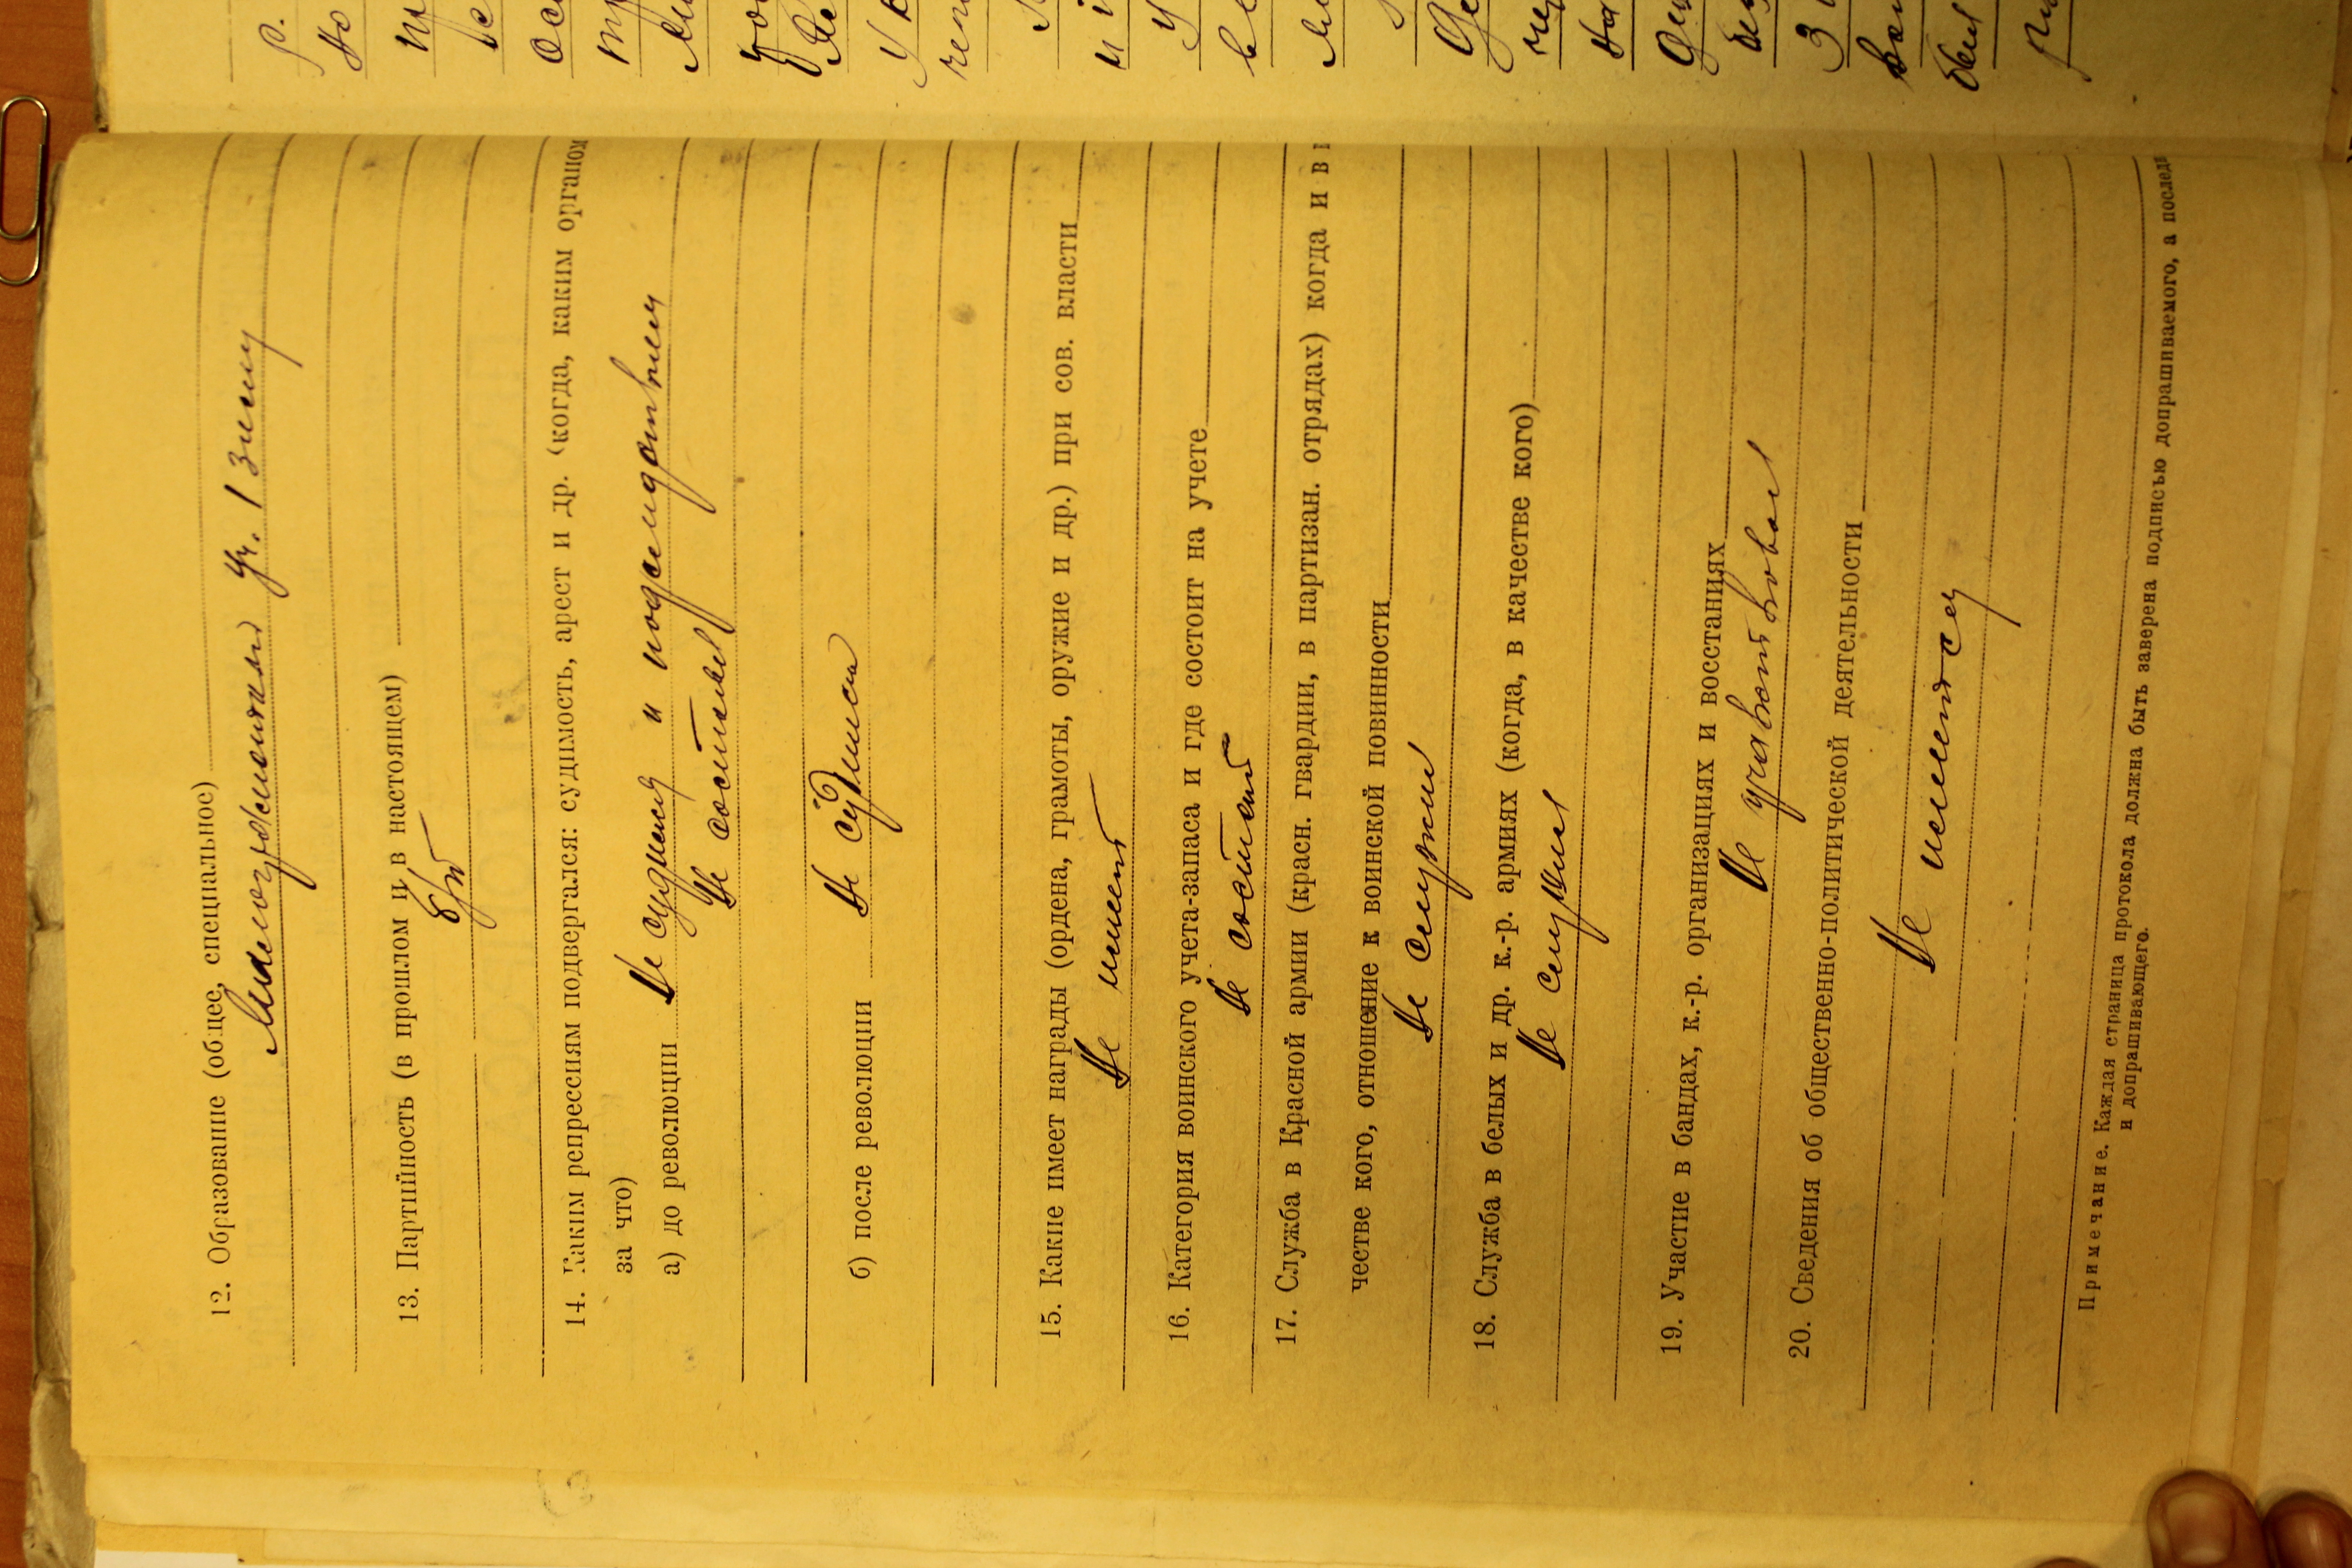 12. Образование (общее, специальное)
Малограмотный уч. 1 зиму
13. Партийность (в прошлом и в настоящем)
б/п
14. Каким репрессиям подвергался: судимость, арест и др. (когда, каким органом
за что)
а) до революции Не судился и под следствием
Не состоял
б) после революции Не судился
15. Какие имеет награды (ордена, грамоты, оружие и др.) при сов. власти
Не имеет
16. Категория воинского учета-запаса и где состоит на учете
Не состоит
17. Служба в Красной армии (красн. гвардии, в партизан. отрядах) когда и в
честве кого, отношение к воинской повинности
Не служил
18. Служба в белых и др. к.-р. армиях (когда, в качестве кого)
Не служил
19. Участие в бандах, к.-р. организациях и восстаниях
Не участвовал
20. Сведения об общественно-политической деятельности
Не имеется
Примечание. Каждая страница протокола должна быть заверена подписью допрашиваемого, а послед
и допрашивающего.